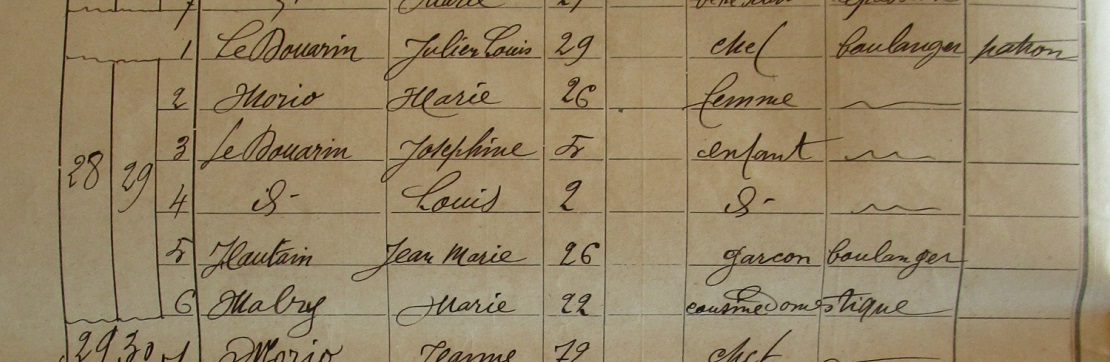 Marie
1 Le Douarin Julien Louis 29 chef boulanger patron
2 Morio Marie 26 femme
28 29 3 Le Douarin Josephine 5 enfant
4 d°- Louis 2 d°-
5 Hautain Jean Marie 26 garcon boulanger
6 Mabry Marie 22 cousine domestique
29 30 1 Morio Jeanne 72 chef